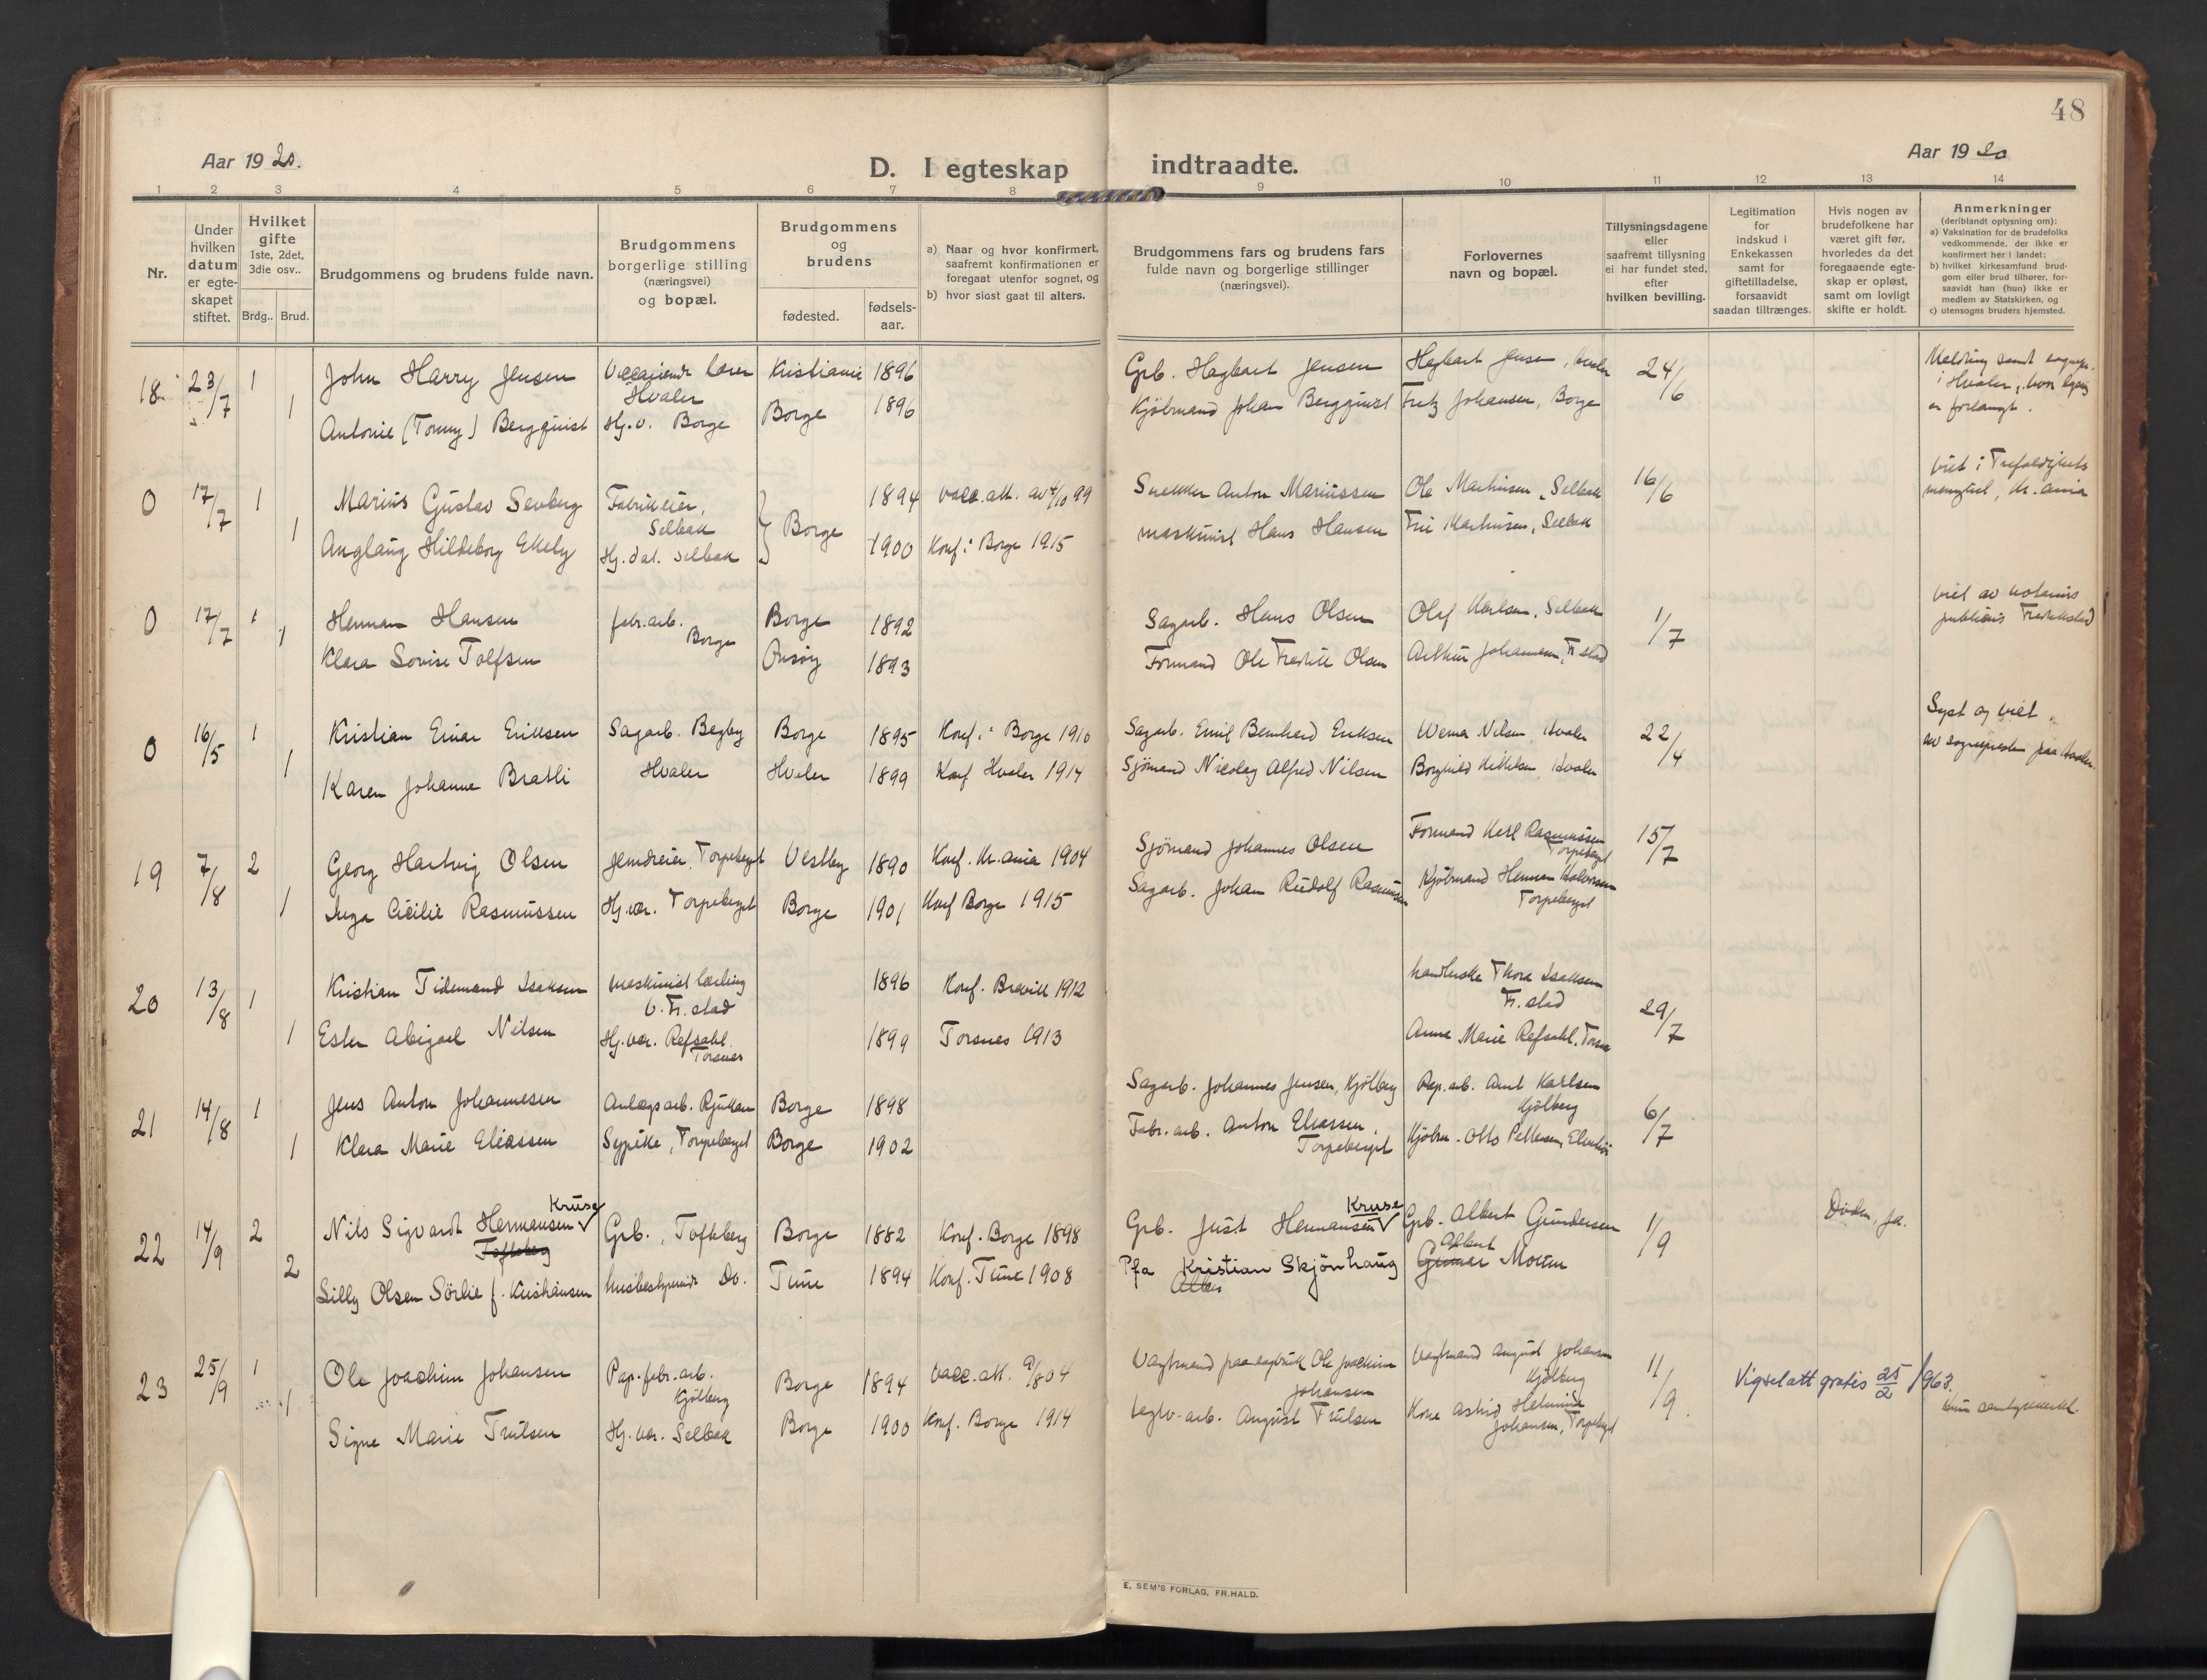 48
Aar 1920.
Aar 1920
D. I egteskap indtraadte.
1 2 3 4 5 6 7 8 9 10 11 12 13 14
Nr.
Under hvilken datum er egte-skapet stiftet.
Hvilket gifte 1ste, 2det, 3die osv..
Brdg.. Brud.
Brudgommens og brudens fulde navn.
Brudgommens borgerlige stilling (næringsvei) og bopæl.
Brudgommens og brudens
fødested.
fødsels-aar.
a) Naar og hvor konfirmert, saafremt konfirmationen er foregaat utenfor sognet, og
b) hvor sidst gaat til alters.
Brudgommens fars og brudens fars fulde navn og borgerlige stillinger (næringsvei).
Forlovernes navn og bopæl.
Tillysningsdagene eller saafremt tillysning ei har fundet sted, efter hvilken bevilling.
Legitimation for indskud i Enkekassen samt for giftetilladelse, forsaavidt saadan tiltrænges.
Hvis nogen av brudefolkene har været gift før, hvorledes da det foregaaende egte-skap er opløst, samt om lovligt skifte er holdt.
Anmerkninger
(deriblandt oplysning om):
a) Vaksination for de brudefolks vedkommende, der ikke er konfirmert her i landet;
b) hvilket kirkesamfund brud-gom eller brud tilhører, for-saavidt han (hun) ikke er medlem av Statskirken, og
c) utensogns bruders hjemsted.
18 23/7 1 John Harry Jensen Vicarierende lærer Hvaler Kristiania 1896 Grb. Hagbart Jensen Hagbart Jensen, Hvaler 24/6
1 Antonie (Tonny) Bergquist Hj.v. Borge Borge 1896 Kjöbmand Johan Bergquist Fritz Johansen, Borge
Melding sendt sognepr. i Hvaler, hvor lysning er forlangt.
0 17/7 1 Marius Gustav Sevberg Fabrikeier, Selbak Borge 1894 vacc.att. av 4/10 99 Snekker Anton Mariussen Ole Mathisen, Selbak 16/6
1 Anglaug Hildeborg Ekely Hj.dat. Selbak 1900 Konf. i Borge 1915 maskinist Hans Hansen Fru Mathisen, Selbak
viet i Trefoldighets menighet, Kr.ania
0 17/7 1 Herman Hansen fabr.arb. Borge Borge 1892 Sagarb. Hans Olsen Olaf Karlsen, Selbak 1/7
1 Klara Lovise Tolfsen Onsøy 1893 Formand Ole Fredrik Olsen Arthur Johannesen, Fr.stad
viet av notarius publicus Fredrikstad
0 16/5 1 Kristian Einar Eriksen Sagarb. Begby Borge 1895 Konf. i Borge 1910 Sagarb. Emil Bernhard Eriksen Werner Nilsen, Hvaler 22/4
1 Karen Johanne Bratli Hvaler Hvaler 1899 Konf Hvaler 1914 Sjömand Nicolay Alfred Nilsen Borghild Kittilsen, Hvaler
Lyst og viet av sognepresten paa Hvaler.
19 7/8 2 Georg Hartvig Olsen Jerndreier, Torpeberget Vestby 1890 Konf. Kr.ania 1904 Sjömand Johannes Olsen Formand Karl Rasmussen Torpeberget 15/7
1 Inga Cicilie Rasmussen Hj.vær. Torpeberget Borge 1901 Konf Borge 1915 Sagarb. Johan Rudolf Rasmussen Kjöbmand Herman Halvorsen Torpeberget
20 13/8 1 Kristian Tidemand Isaksen maskinist lærling V. Fr.stad 1896 Konf. Brevik 1912 handlerske Thora Isaksen Fr.stad 29/7
1 Ester Abigael Nilsen Hj.vær. Refsahl. Torsnes 1899 Torsnes 1913 Anne Marie Refsahl. Torsnes
21 14/8 1 Jens Anton Johannesen Anlægsarb. Rjukan Borge 1898 Sagarb. Johannes Jensen, Kjölberg Pap.arb. Arnt Karlsen Kjölberg 6/7
1 Klara Marie Eliassen Sypike, Torpeberget Borge 1902 Fabr.arb. Anton Eliassen, Torpeberget Kjöbm. Otto Pettersen,
22 14/9 2 Nils Sigvardt Hermansen Kruse Tofteberg Grb., Tofteberg Borge 1882 Konf. Borge 1898 Grb. Just Hermansen Kruse Grb. Albert Gundersen 1/9 Döden, ja.
2 Lilly Olsen Sörlie f. Kristiansen husbestyrerinde Do. Tune 1894 Konf. Tune 1908 Pfa Kristian Skjönhaug Albert Moum
23 25/9 1 Ole Joachim Johansen Pap.fabr.arb. Kjölberg Borge 1894 vacc.att. 9/8 04 Vagtmand paa Ole Joachim Johansen Vagtmand August Johansen Kjölberg 11/9
1 Signe Marie Trulsen Hj.vær. Selbak Borge 1900 Konf. Borge 1914 Teglv.arb. August Trulsen Kone Astrid Helmine Johansen, Torpeberget
Vigselatt gratis 25/2 1963.
E. SEM'S FORLAG, FR.HALD.